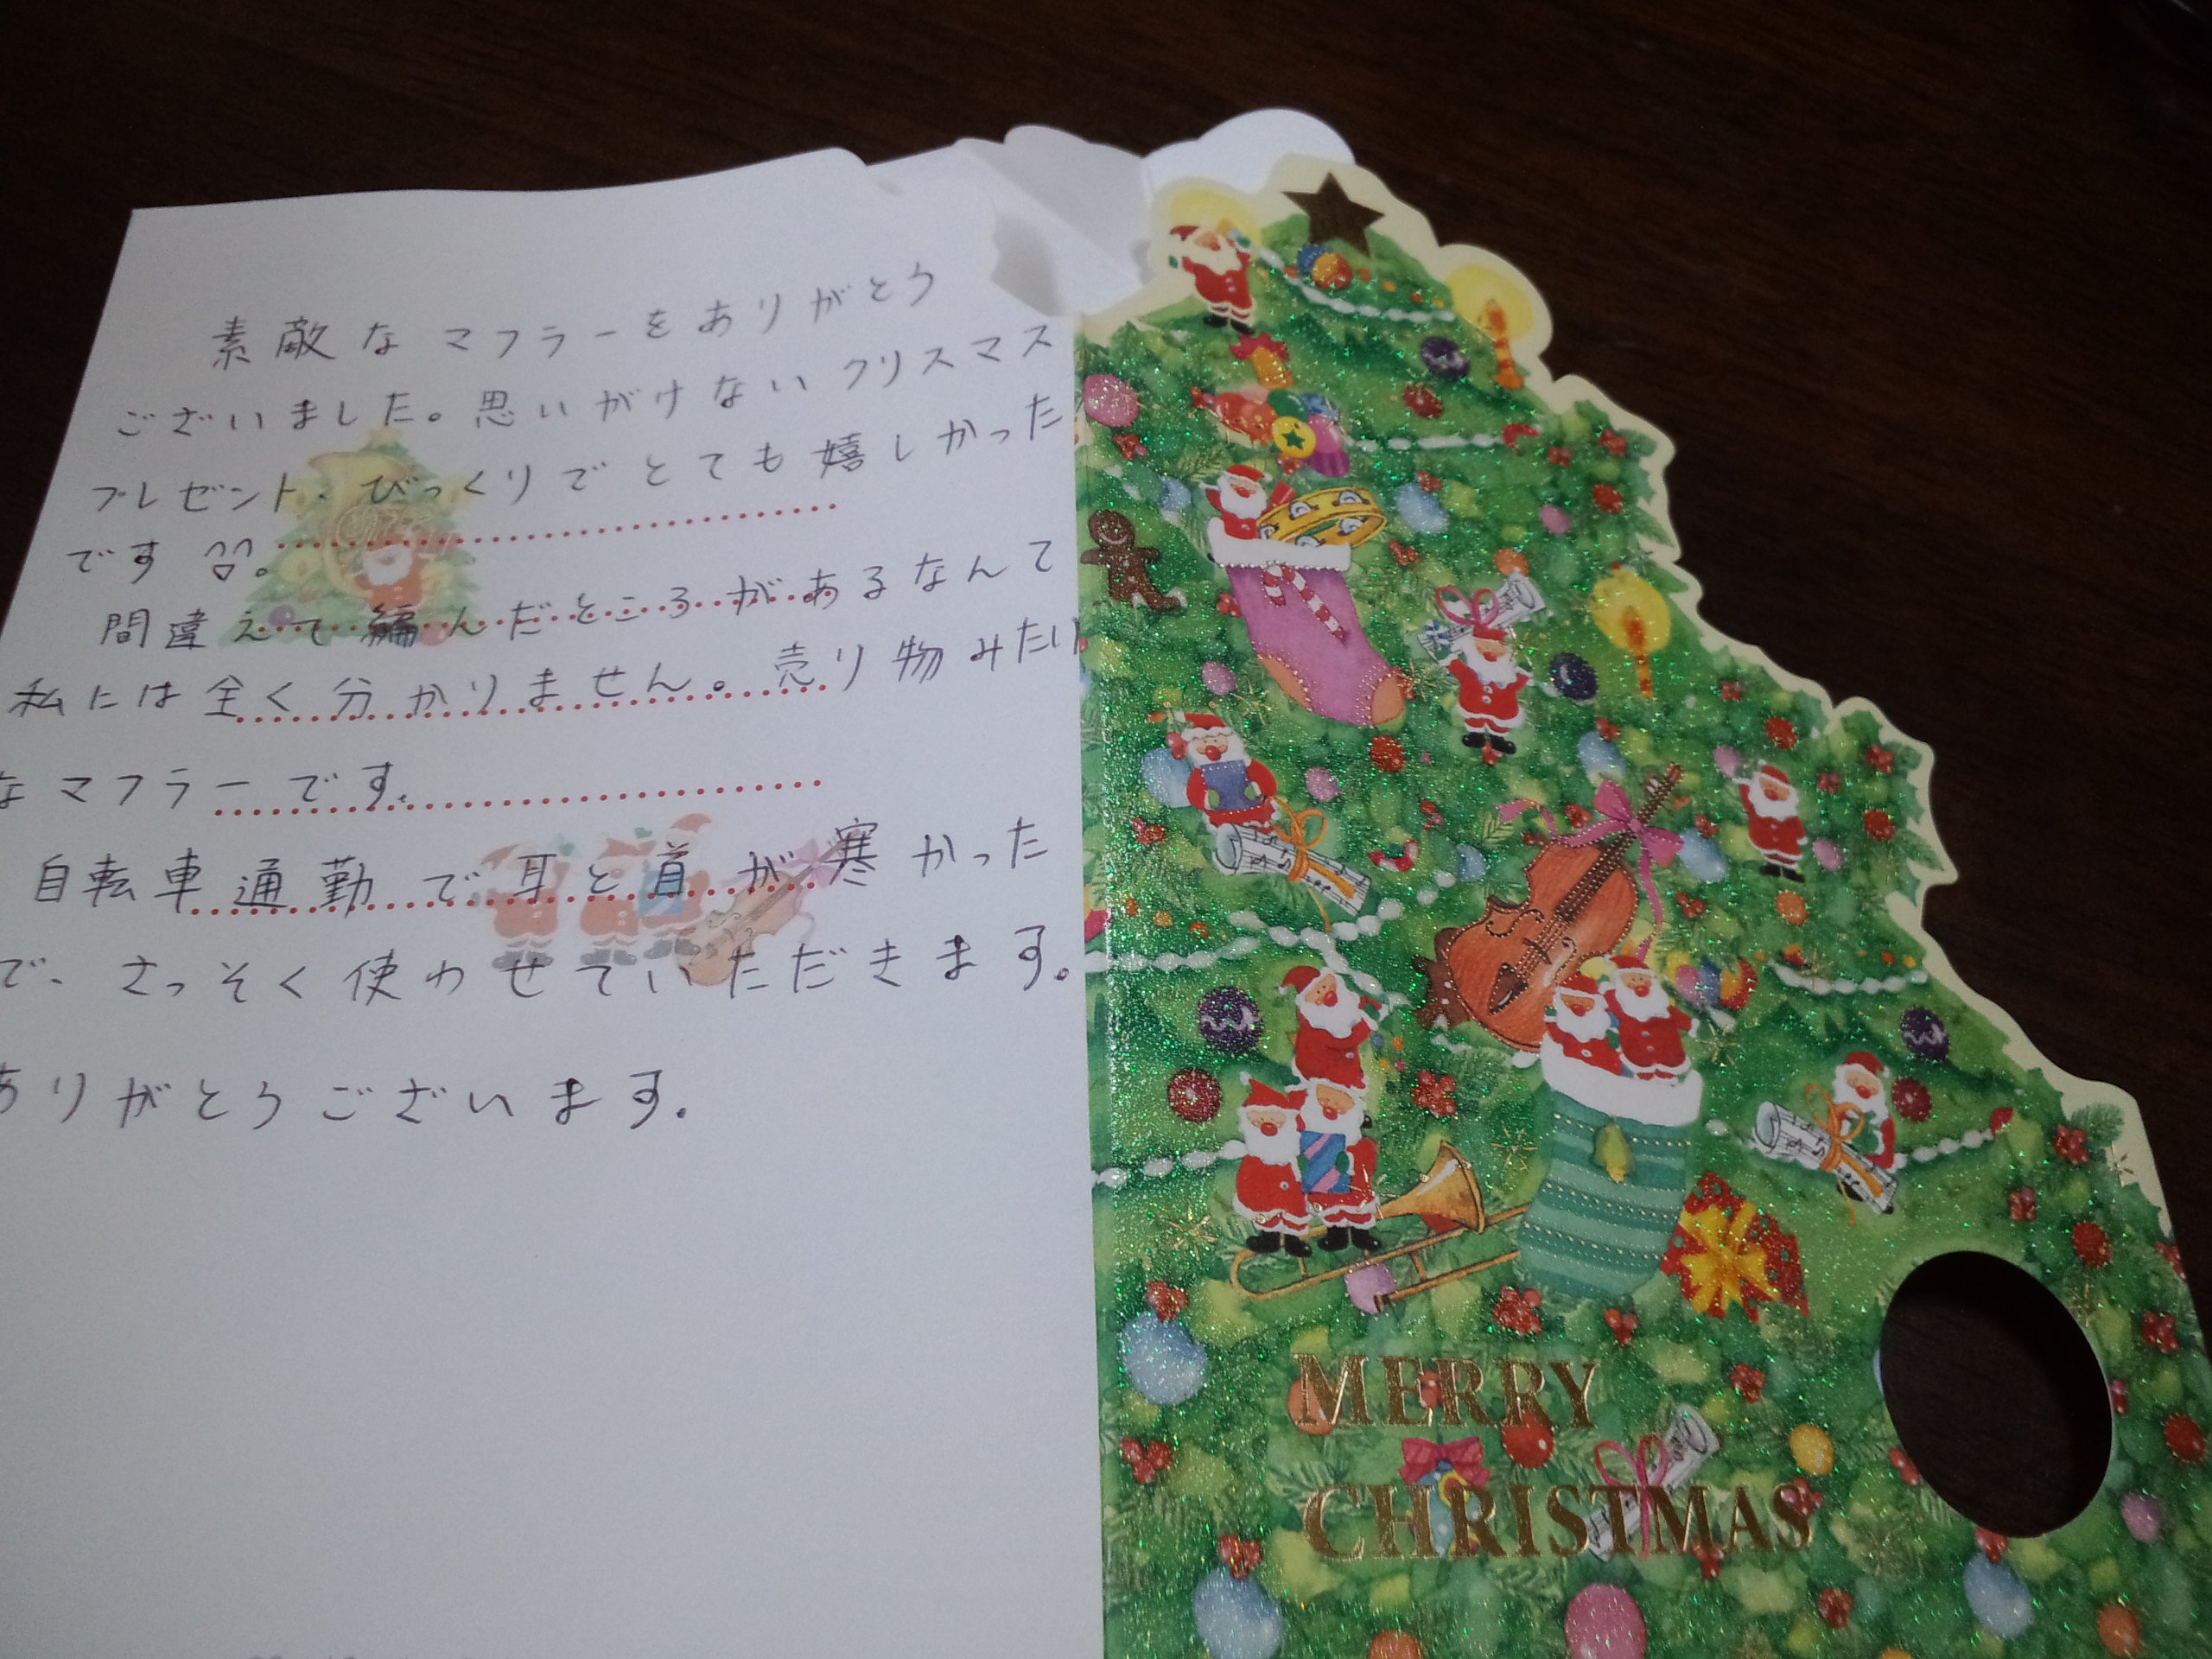 素敵なマフラーをありがとう
ございました。思いがけないクリスマス
プレゼント、びっくりでとても嬉しかった
です。
間違えて編んだところがあるなんて
私には全く分かりません。売り物みたい
なマフラーです。
自転車通勤で耳と首が寒かった
で、さっそく使わせていただきます。
ありがとうございます。
MERRY
CHRISTMAS